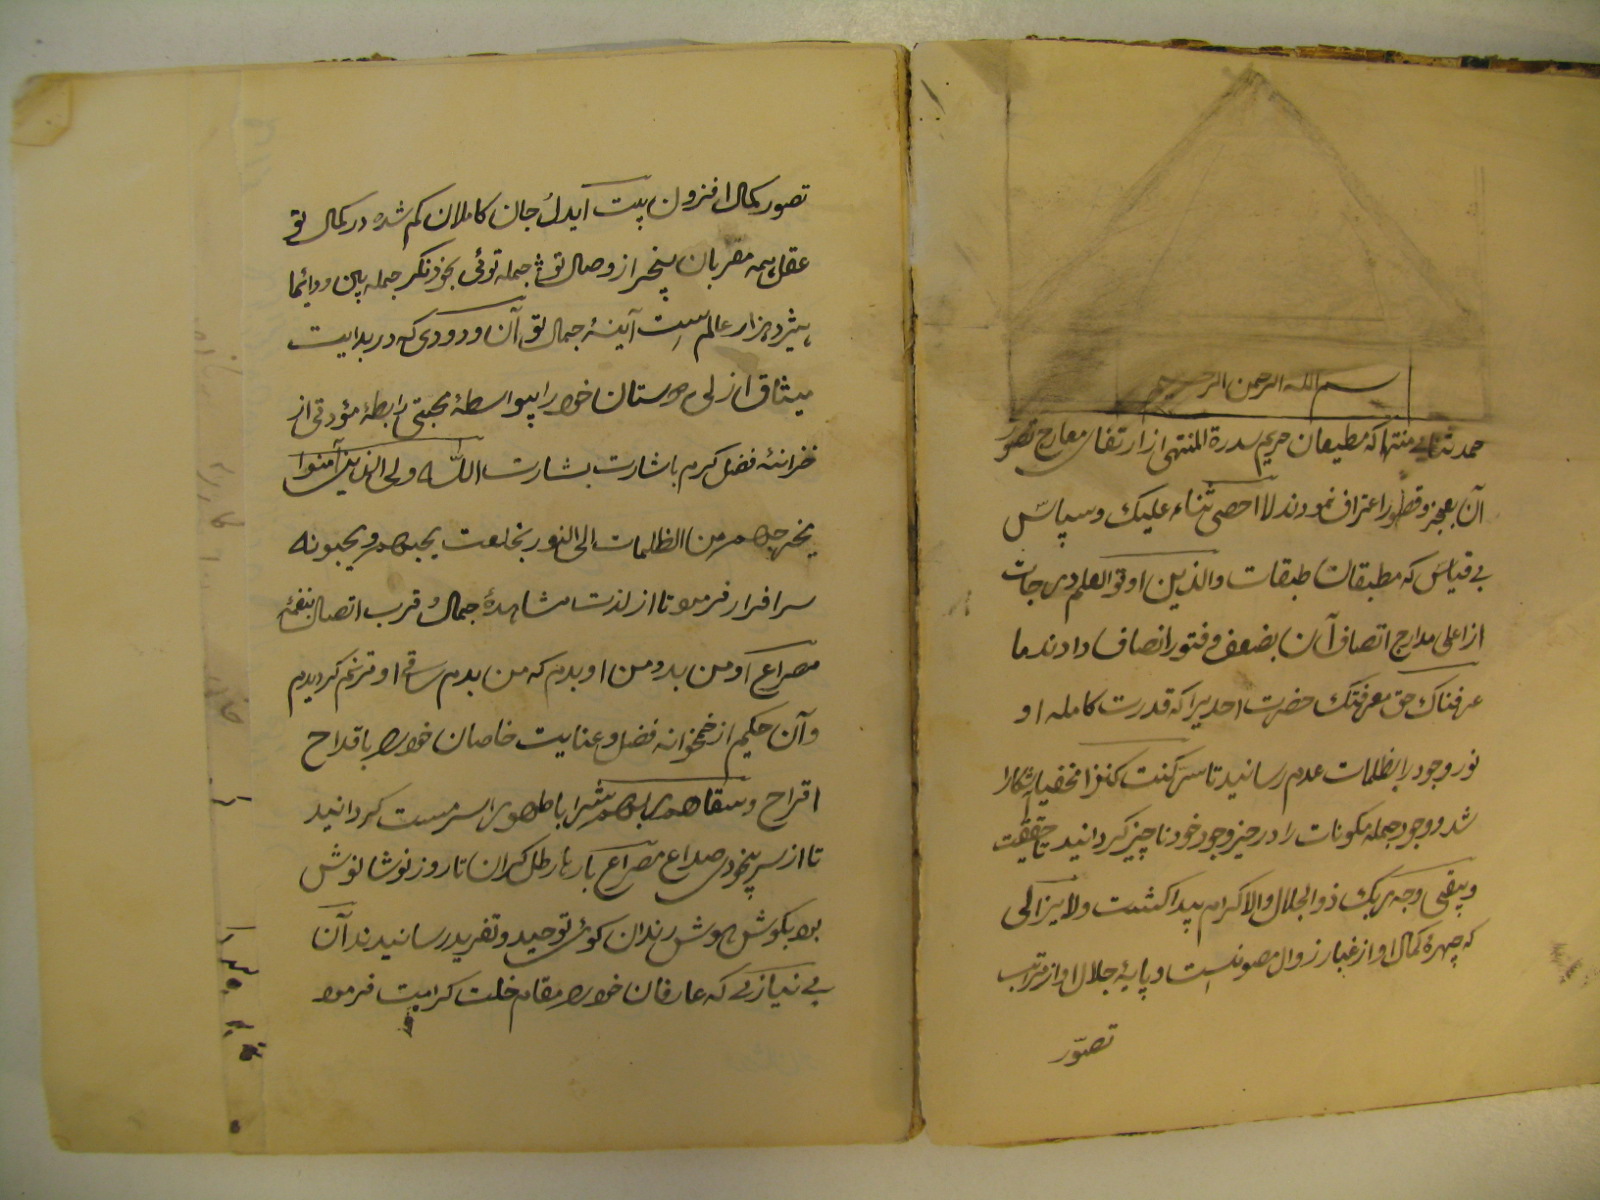 بسم الله الرحمن الرحيم
حمد ثنائی منتها که مطیعان حریم سدرة المنتهی از ارتفاع معارج تصور
آن بعجز و قصور اعتراف نمودند لا احصی ثناء علیک و سپاس
بی قیاس که مطبقان طبقات والذین اوتوا العلم درجات
از اعلی مدارج اتصاف آن بضعف و فتور انصاف دادند ما
عرفناک حق معرفتک حضرت احدیرا که قدرت کامله او
نور وجود را بظلمات عدم رسانید تا سر کنت کنزا مخفیا آشکارا
شد و وجود جمله مکونات را در حیز وجود خود ناچیز کردانید تا حقیقت
و یبقی وجه ربک ذو الجلال والاکرام پیدا کشت ولایزالی
که چهرهٔ کمال او از غبار زوال مصونست و پایهٔ جلال او از مراتب
تصوّر
تصور کمال افزون بیت ایدل جان کاملان کم شده در کمال تو
عقل همه مقربان بیخبر از وصال تو جمله توئی بخود نکر جمله ببین و دائما
هیژده هزار عالم است آینهٔ جمال تو آن ودودی که در بدایت
میثاق ازلی دوستان خود را بیواسطهٔ محبتی رابطهٔ مؤدتی از
خزانهٔ فضل کرم باشارت بشارت الله ولی الذین آمنوا
یخرجهم من الظلمات الی النور بخلعت یحبهم و یحبونه
سرافراز فرمود تا از لذت مشاهدهٔ جمال و قرب اتصال بنغمهٔ
مصراع او من بد و من او بدم که من بدم ساقی او ترنم کردیدم
و آن حکیم از خمخوانه فضل و عنایت خاصان خود را باقداح
اقراح و سقاهم ربهم شرابا طهورا سرمست کردانید
تا از سر بیخودی صداع مصراع بار ها رطل کران تا روز نوشانوش
بود بکوش هوش رندان کوی توحید و تفرید رسانیدند آن
بی نیازی که عارفان خود را مقام خلت کرامت فرمود